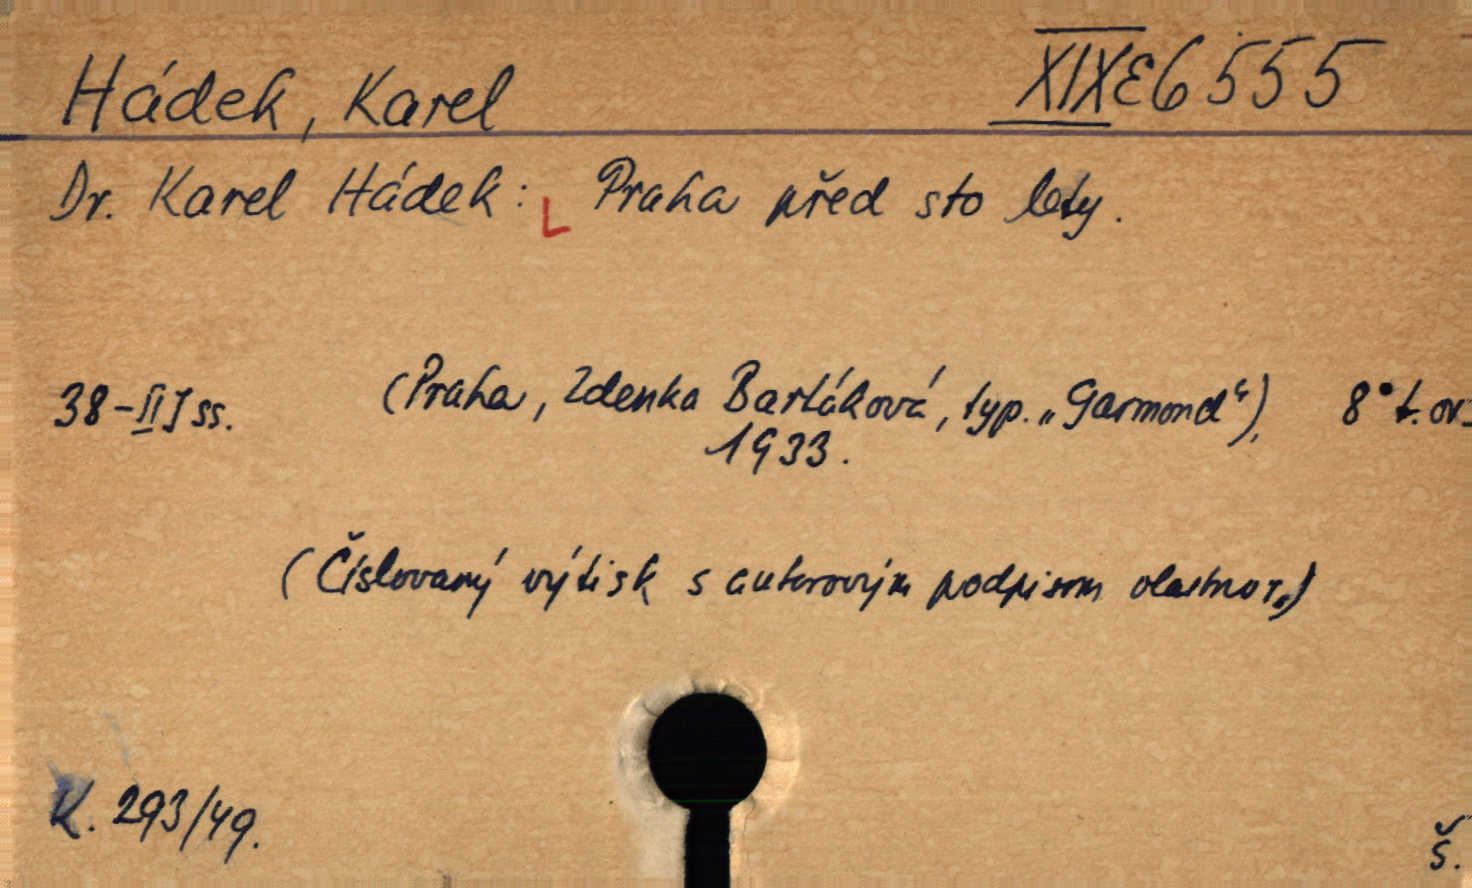 Hádek, Karel XIX E 6555
Dr. Karel Hádek: Praha před sto lety.
38-II] ss. (Praha, Zdenka Bartáková, typ. „Garmond“), 8°
1933.
(Číslovaný výtisk s autorovým podpisem vlastnor.)
K. 293/49.
Š.